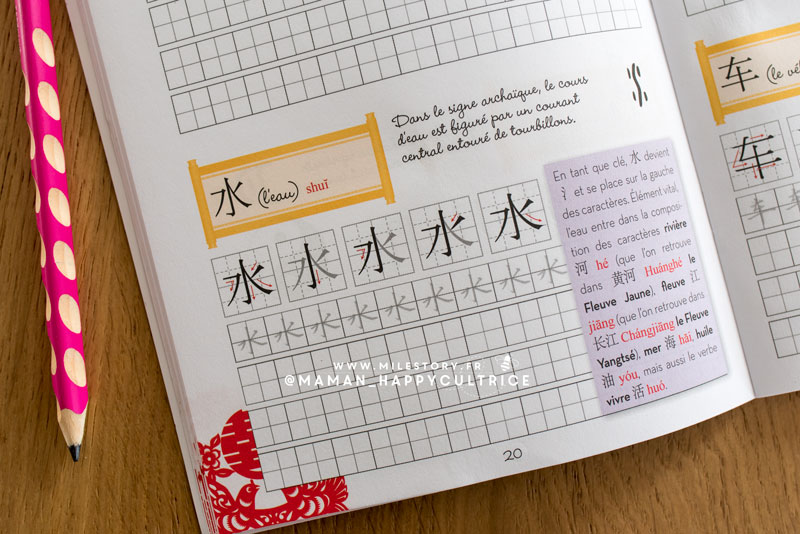 Dans le signe archaïque, le cours
d'eau est figuré par un courant
central entouré de tourbillons.
水 (l'eau) shuǐ
水 水 水 水 水
水 水 水 水 水 水 水 水 水
En tant que clé, 水 devient
氵 et se place sur la gauche
des caractères. Élément vital,
l'eau entre dans la composi-
tion des caractères rivière
河 hé (que l'on retrouve
dans 黄河 Huánghé le
Fleuve Jaune), fleuve 江
jiāng (que l'on retrouve dans
长江 Chángjiāng le Fleuve
Yangtsé), mer 海 hǎi, huile
油 yóu, mais aussi le verbe
vivre 活 huó.
20
车 (le
车
车 车
WWW.MILESTORY.FR
@MAMAN_HAPPYCULTRICE